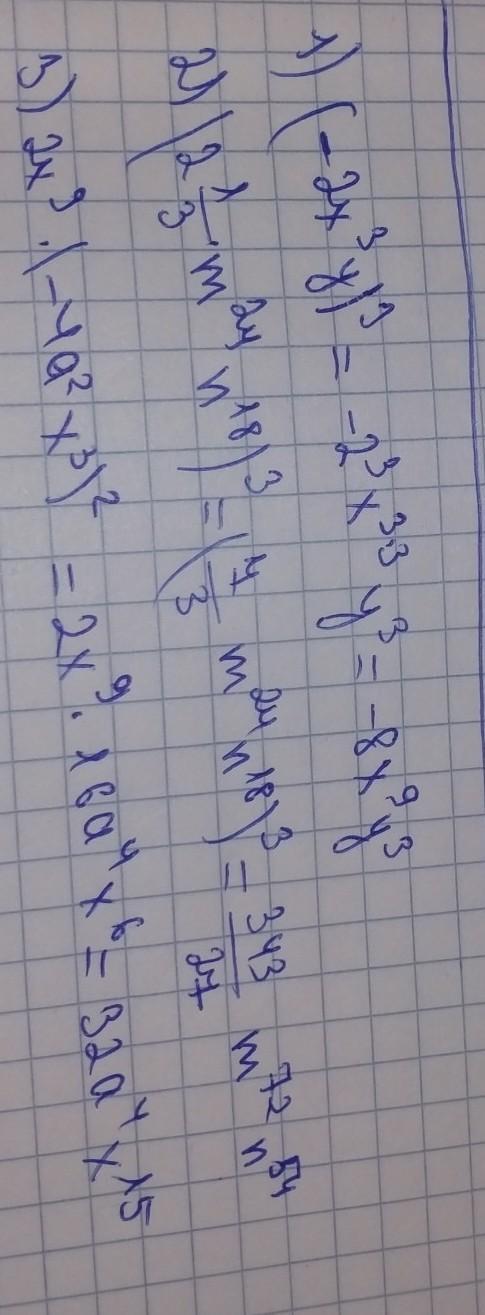 1) (-2x³y)³ = -2³ x³·³ y³ = -8x⁹y³
2) (2 1/3 · m²⁴ n¹⁸)³ = (7/3 m²⁴ n¹⁸)³ = 343/27 m⁷² n⁵⁴
3) 2x⁹ · (-4a² x³)² = 2x⁹ · 16a⁴ x⁶ = 32a⁴ x¹⁵